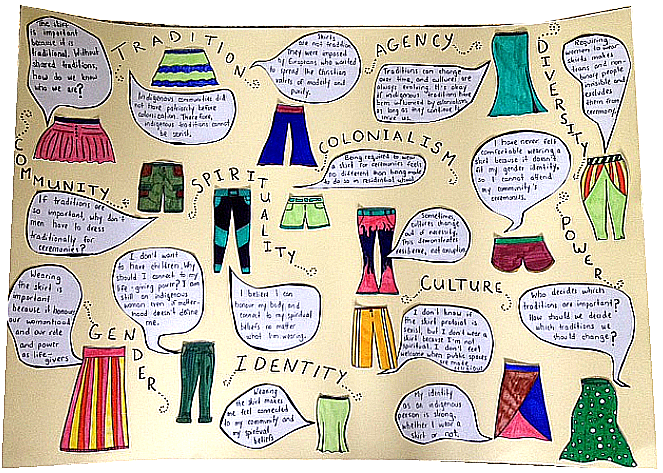 The skirt
is important
because it is
traditional. Without
shared traditions,
how do we know
who we are?
TRADITION
Indigenous communities did
not have patriarchy before
colonization. Therefore,
indigenous traditions cannot
be sexist.
Skirts
are not tradition.
They were imposed
by Europeans who wanted
to spread the Christian
values of modesty and
purity.
AGENCY
Traditions can change
over time, and cultures are
always evolving. It's okay
if indigenous traditions have
been influenced by colonialism,
as long as they continue to
serve us.
DIVERSITY
Requiring
women to wear
skirts makes
trans and non-
binary people
invisible and
excludes
them from
ceremony.
COLONIALISM
Being required to wear
a skirt for ceremonies feels
no different than being made
to do so in residential school.
I have never felt
comfortable wearing a
skirt because it doesn't
fit my gender identity,
so I cannot attend
my community's
ceremonies.
COMMUNITY
If traditions are
so important, why don't
men have to dress
traditionally for
ceremonies?
SPIRITUALITY
I believe I can
honour my body and
connect to my spiritual
beliefs no matter
what I'm wearing.
Sometimes,
cultures change
out of necessity.
This demonstrates
resilience, not corruption.
POWER
Who decides which
traditions are important?
How should we decide
which traditions we
should change?
Wearing
the skirt is
important
because it honours
our womanhood
and our role
and power
as life-
givers.
I don't want
to have children, why
should I connect to my
life-giving power? I am
still an indigenous
woman even if mother-
hood doesn't define
me.
GENDER
CULTURE
I don't know if
the skirt protocol is
sexist, but I don't wear a
skirt because I'm not
spiritual. I don't feel
welcome when public spaces
are made
religious.
IDENTITY
Wearing
the skirt makes
me feel connected
to my community and
my spiritual
beliefs.
My identity
as an indigenous
person is strong,
whether I wear a
skirt or not.